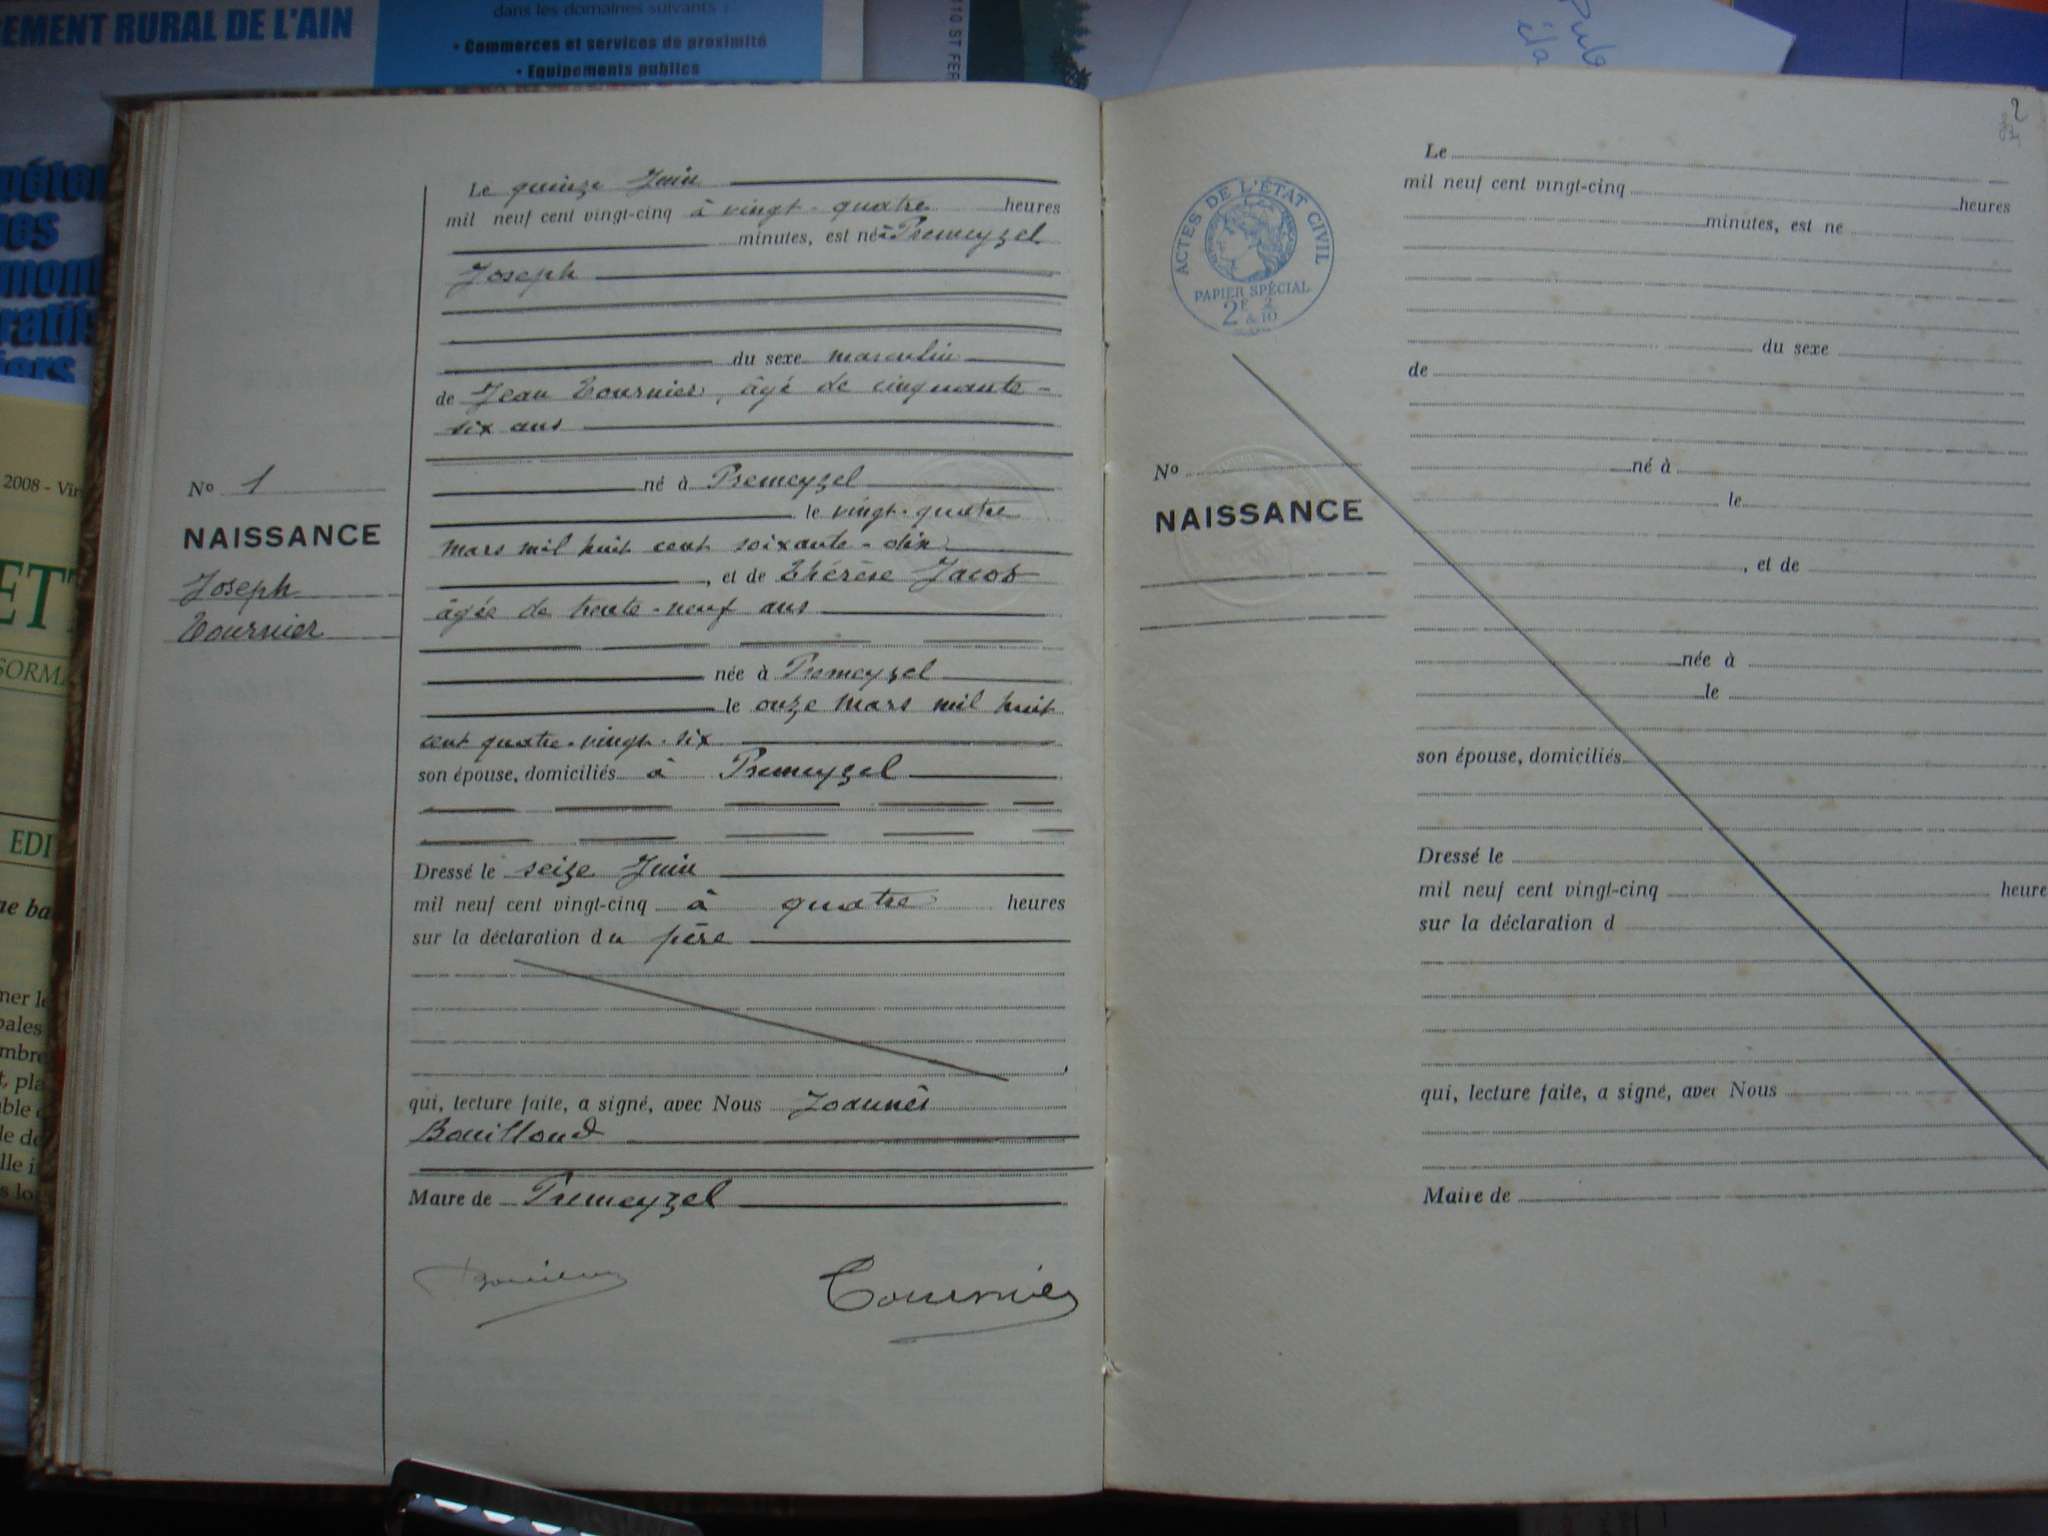 EMENT RURAL DE L'AIN
dans les domaines suivants :
• Commerces et services de proximité
• Equipements publics
110 ST FER
Pub
éta
péten
nes
mont
ratifs
iers
2008 - Vin
ETT
SORMA
EDI
ne ba
mer le
pales
mbre
t, pla
ible
le de
lle i
s lo
Le quinze Juin
mil neuf cent vingt-cinq à vingt-quatre heures
minutes, est né à Premeyzel
Joseph
du sexe masculin
de Jean Tournier, âgé de cinquante-
six ans
né à Premeyzel
le vingt-quatre
mars mil huit cent soixante-dix
, et de Thérèse Jacob
âgée de trente-neuf ans
née à Premeyzel
le onze mars mil huit
cent quatre-vingt-six
son épouse, domiciliés à Premeyzel
Dressé le seize Juin
mil neuf cent vingt-cinq à quatre heures
sur la déclaration du père
qui, lecture faite, a signé, avec Nous Joannès
Bouilloud
Maire de Premeyzel
Tournier
No 1
NAISSANCE
Joseph
Tournier
2
ACTES DE L'ÉTAT CIVIL
PAPIER SPÉCIAL
2F & 2/10
No
NAISSANCE
Le
mil neuf cent vingt-cinq heures
minutes, est né
du sexe
de
né à
le
, et de
née à
le
son épouse, domiciliés
Dressé le
mil neuf cent vingt-cinq heure
sur la déclaration d
qui, lecture faite, a signé, avec Nous
Maire de